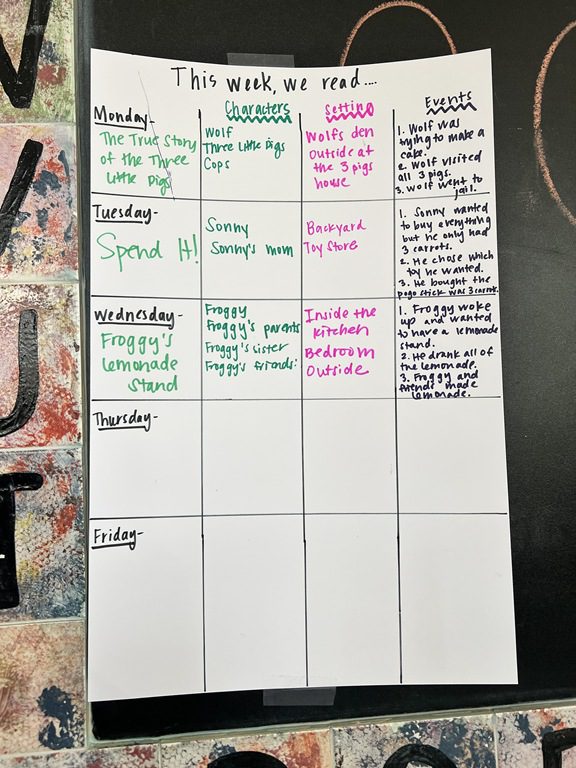 This week, we read....
Characters
Setting
Events
Monday-
The True Story
of the Three
Little Pigs
Wolf
Three Little Pigs
Cops
Wolfs den
Outside at
the 3 pigs
house
1. Wolf was
trying to make a
cake.
2. Wolf visited
all 3 pigs.
3. Wolf went to
jail.
Tuesday-
Spend It!
Sonny
Sonny's mom
Backyard
Toy Store
1. Sonny wanted
to buy everything
but he only had
3 carrots.
2. He chose which
toy he wanted.
3. He bought the
pogo stick was 3 carrots.
Wednesday-
Froggy's
Lemonade
Stand
Froggy
Froggy's parents
Froggy's sister
Froggy's friends:
Inside the
kitchen
Bedroom
Outside
1. Froggy woke
up and wanted
to have a lemonade
stand.
2. He drank all of
the lemonade.
3. Froggy and
friends made
lemonade.
Thursday-
Friday-